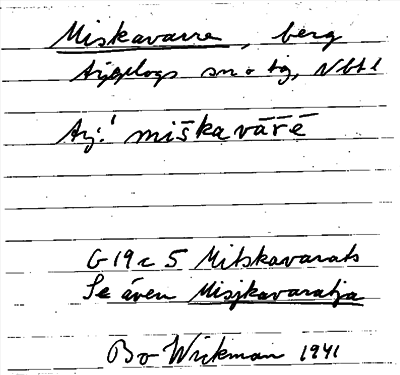 Miskavarre, berg
Arjeplogs sn o tg, Nbtl
Arj.! miškavārē
G 19 c 5 Mitskavarats
Se även Misjkavaratja
Bo Wickman 1941